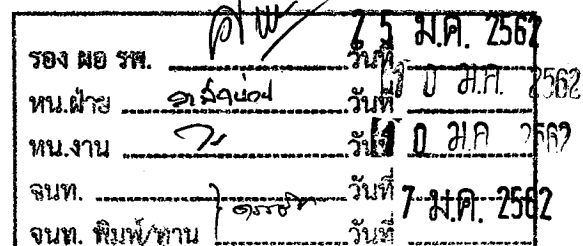 รอง ผอ รพ. วันที่ 25 ม.ค. 2562
หน.ฝ่าย วันที่ 10 ม.ค. 2562
หน.งาน วันที่ 10 ม.ค 2562
จนท. วันที่ 7 ม.ค. 2562
จนท. พิมพ์/ทาน วันที่